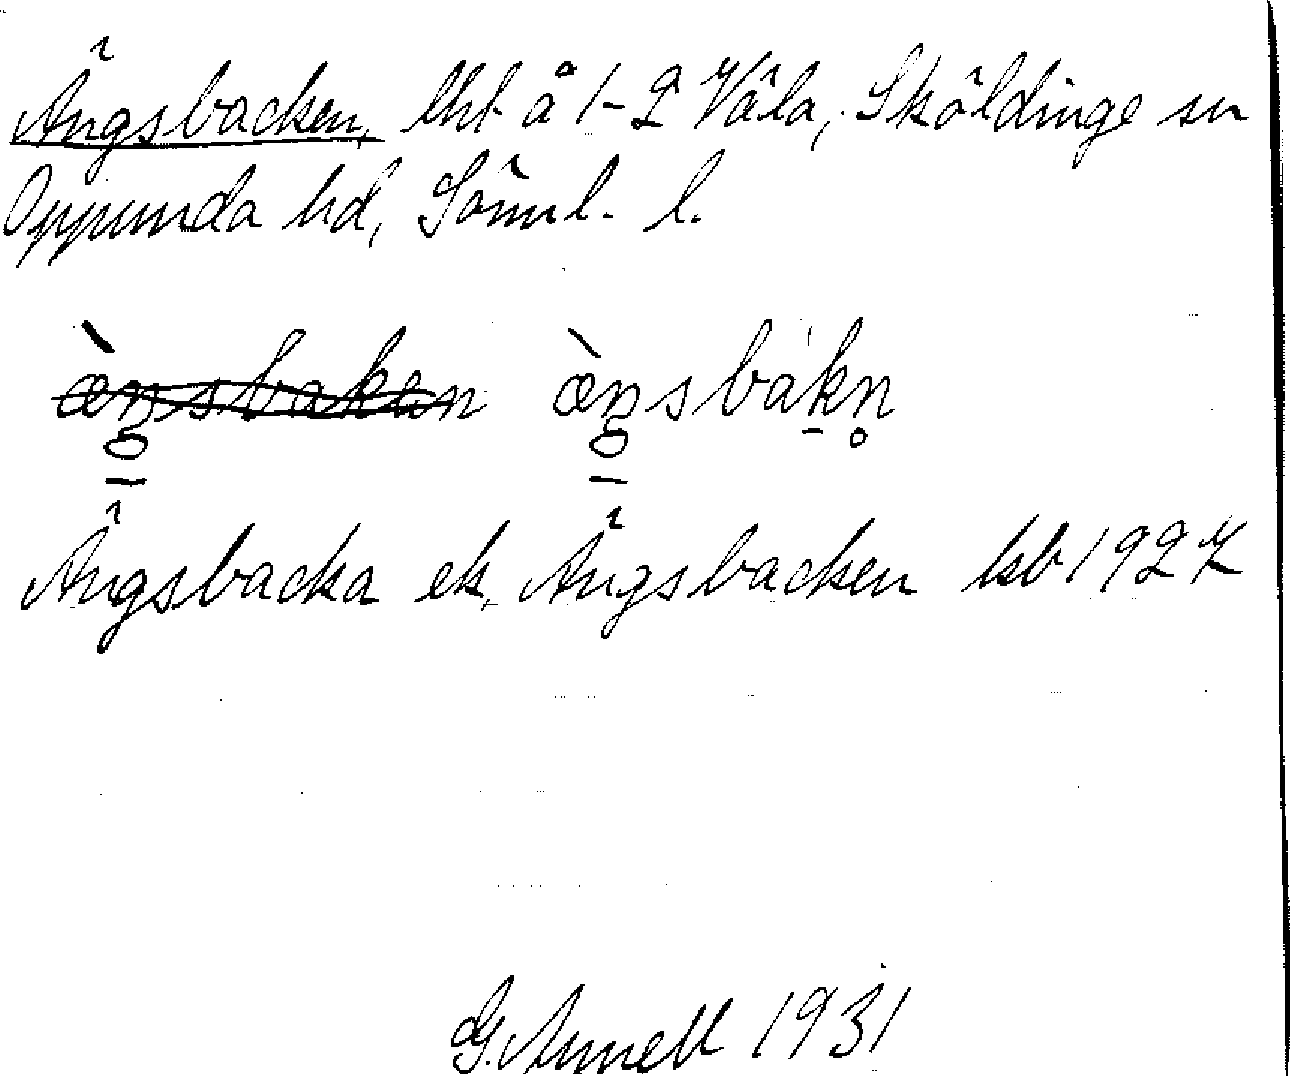 Ängsbacken, lht å 1-2 Våla, Sköldinge sn
Oppunda hd, Söml. l.
æ̀ŋsbaken æ̀ŋsbak̠n̥
Ängsbacka ek, Ängsbacken kb 1927
G. Annell 1931